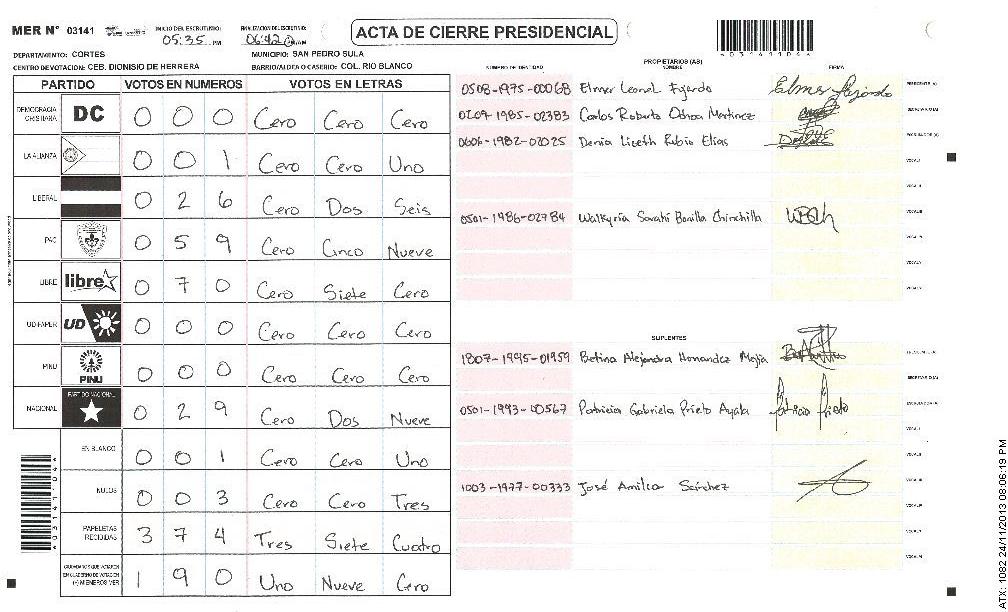 MER N° 03141 INICIO DEL ESCRUTINIO: 05:35 PM FINALIZACION DEL ESCRUTINIO: 06:42 AM
ACTA DE CIERRE PRESIDENCIAL
DEPARTAMENTO: CORTES MUNICIPIO: SAN PEDRO SULA
CENTRO DE VOTACION: CEB. DIONISIO DE HERRERA BARRIO/ALDEA O CASERIO: COL. RIO BLANCO
PARTIDO VOTOS EN NUMEROS VOTOS EN LETRAS
DEMOCRACIA CRISTIANA DC 0 0 0 Cero Cero Cero
LA ALIANZA 0 0 1 Cero Cero Uno
LIBERAL 0 2 6 Cero Dos Seis
PAC 0 5 9 Cero Cinco Nueve
LIBRE libre 0 7 0 Cero Siete Cero
UD-FAPER UD 0 0 0 Cero Cero Cero
PINU PINU 0 0 0 Cero Cero Cero
NACIONAL PARTIDO NACIONAL 0 2 9 Cero Dos Nueve
EN BLANCO 0 0 1 Cero Cero Uno
NULOS 0 0 3 Cero Cero Tres
PAPELETAS RECIBIDAS 3 7 4 Tres Siete Cuatro
CIUDADANOS QUE VOTARON EN CUADERNO DE VOTACION (+) MIEMBROS MER 1 9 0 Uno Nueve Cero
PROPIETARIOS (AS)
NUMERO DE IDENTIDAD NOMBRE FIRMA
0508-1975-00068 Elmer Leonel Fajardo Elmer Fajardo PRESIDENTE (A)
0209-1985-02383 Carlos Roberto Ochoa Martinez SECRETARIO (A)
0606-1982-02025 Denia Lizeth Rubio Elias ESCRUTADOR (A)
VOCAL I
VOCAL II
0501-1986-02784 Walkyria Sarahi Bonilla Chinchilla VOCAL III
VOCAL IV
VOCAL V
VOCAL VI
SUPLENTES
1807-1995-01959 Betina Alejandra Hernandez Mejia PRESIDENTE (A)
SECRETARIO (A)
0501-1993-00567 Patricia Gabriela Prieto Ayala Patricia Prieto ESCRUTADOR (A)
VOCAL I
VOCAL II
1003-1977-00333 José Amilcar Sánchez VOCAL III
VOCAL IV
VOCAL V
VOCAL VI
ATX: 1082 24/11/2013 08:06:19 PM